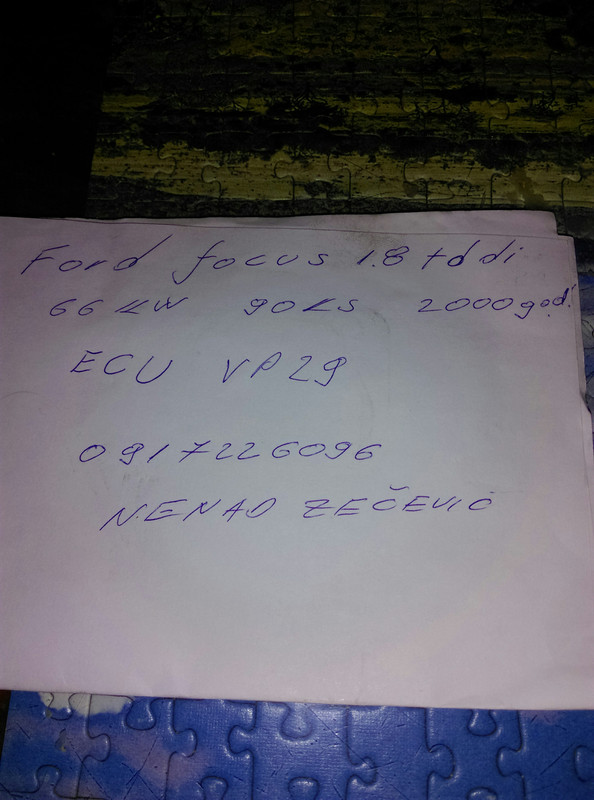 Ford focus 1.8 tddi
66 KW 90KS 2000god.
ECU VP29
0917226096
NENAD ZEČEVIĆ